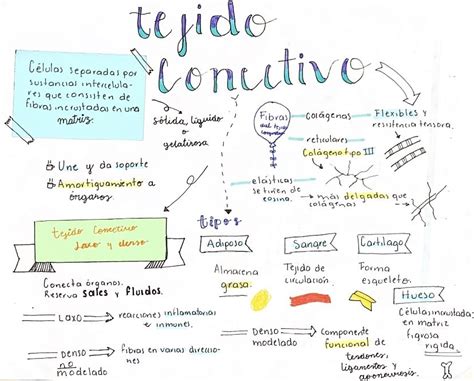 tejido
conectivo
Células separadas por
sustancias intercelula-
res que consisten de
fibras incrustadas en una
matriz.
sólida, líquida
o
gelatinosa
Une y da soporte
Amortiguamiento a
órganos.
Fibras
del tejido
conectivo
colágenas
Flexibles y
resistencia tensora.
reticulares
Colágeno tipo III
elásticas
se tiñen de
eosina.
más delgadas que
colágenas
Tejido Conectivo
Laxo y denso
Conecta órganos.
Reserva sales y fluidos.
LAXO
reacciones inflamatorias
e inmunes.
DENSO
no
modelado
fibras en varias direccio-
nes
tipos
Adiposo
Almacena
grasa.
Sangre
Tejido de
circulación.
Cartílago
Forma
esqueleto.
Hueso
Células incrustadas
en matriz
rigida
DENSO
modelado
componente
funcional de
tendones,
ligamentos y
aponeurosis.